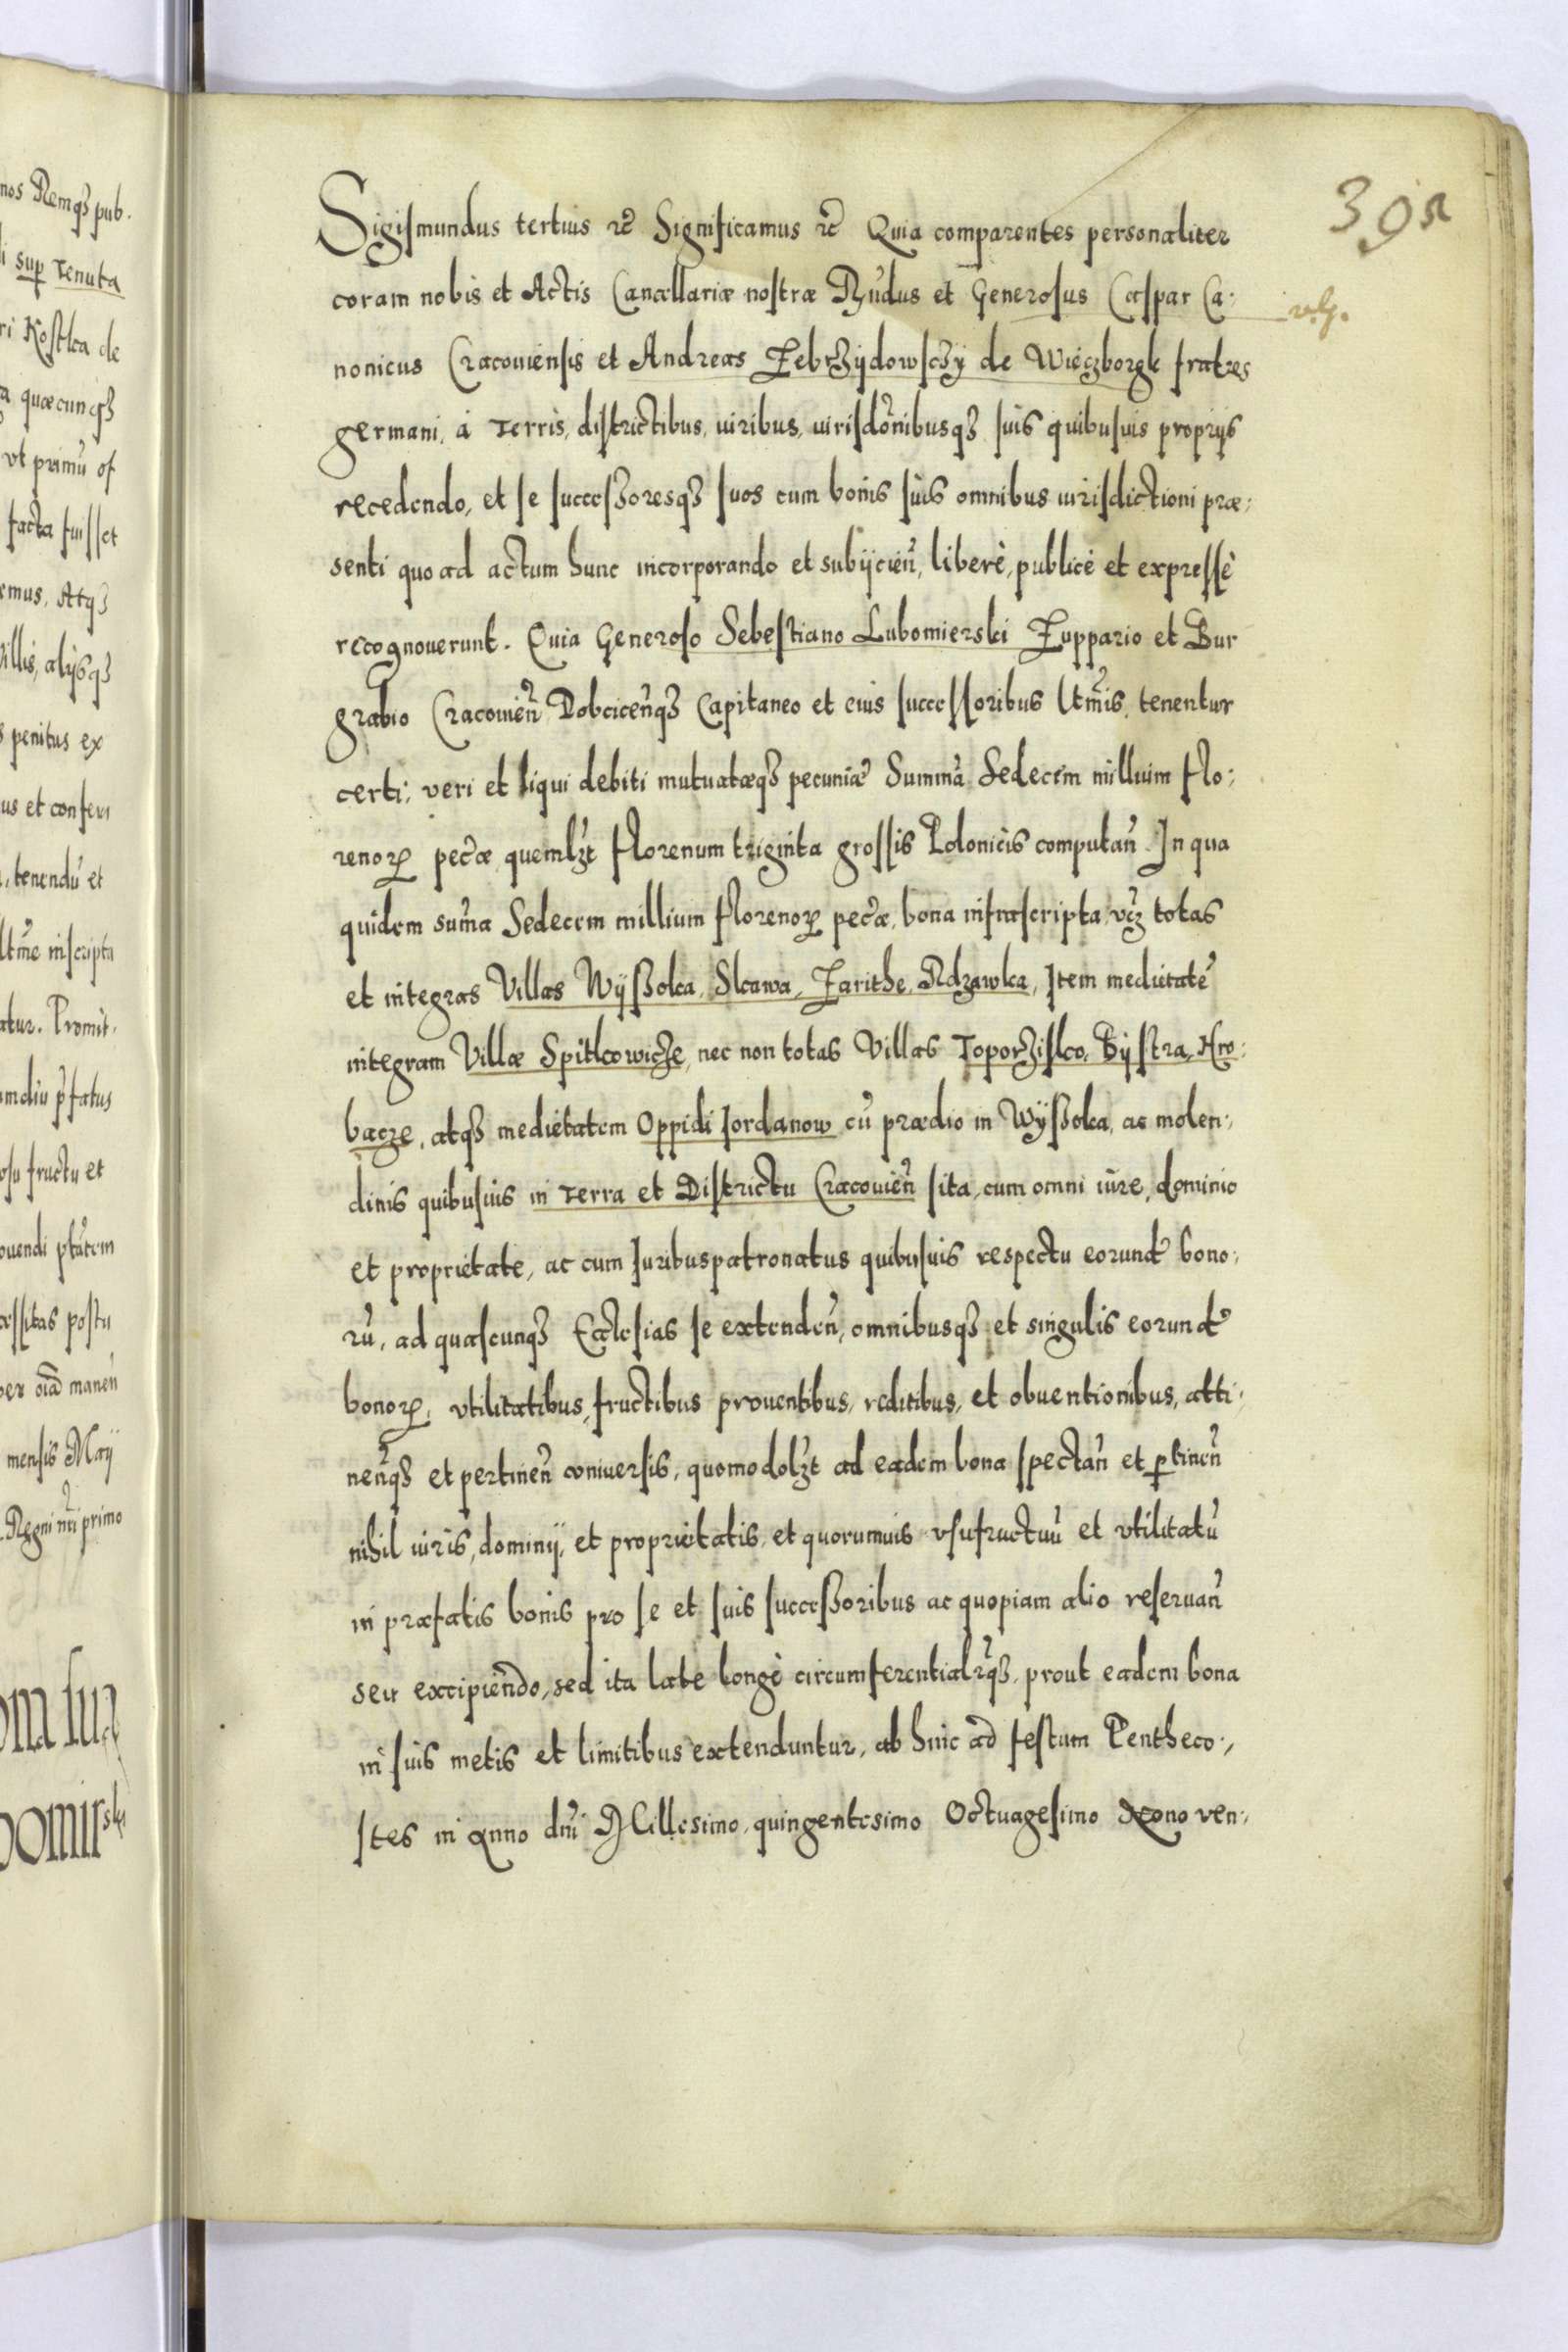 395
Sigismundus tertius etc̃ Significamus etc̃ Quia comparentes personaliter
coram nobis et Actis Cancellariæ nostræ R̃ndus et Generosus Caspar Ca:
nonicus Cracouiensis et Andreas Zebrzÿdowsczÿ de Więczborgk fratres
germani, à Terris, districtibus, iuribus, iurisdõnibusqȝ suis quibusuis proprijs
recedendo, et se successoresqȝ suos cum bonis suis omnibus iurisdictioni præ:
senti quo ad actum hunc incorporando et subijcien̄, liberè, publicè et expressè
recognouerunt. Quia Generoso Sebestiano Lubomierski Zuppario et Bur
grabio Cracouien̄ Dobcicen̄qȝ Capitaneo et eius successoribus ltm̃is, tenentur
certi, veri et liqui debiti mutuatæqȝ pecuniæ Summā Sedecim millium Flo:
renoꝝ pec̃æ quemlȝt Florenum triginta grossis Polonicis computan̄. In qua
quidem sum̃a Sedecem millium florenoꝝ pec̃æ, bona infrascripta vcȝ totas
et integras Villas Wÿßoka, Skawa, Zarithe, Rdzawka, Item medietatē
integram Villæ Spitkowicze, nec non totas Villas Toporzisko, Bÿstra, Hro:
bacze, atqȝ medietatem Oppidi Iordanow cū prædio in Wÿßoka, ac molen:
dinis quibusuis in Terra et Districtu Cracouien̄ sita, cum omni iure, dominio
et proprietate, ac cum Iuribuspatronatus quibusuis respectu eorund̃ bono:
rū, ad quascunqȝ Ecclesias se extenden̄, omnibusqȝ et singulis eorund̃
bonoꝝ, vtilitatibus, fructibus prouentibus, reditibus, et obuentionibus, atti:
nen̄qȝ et pertinen̄ coniuersis, quomodolȝt ad eadem bona spectan̄ et ꝑtinen̄
nihil iuris, dominij, et proprietatis, et quorumuis vsufructuū et vtilitatū
in præfatis bonis pro se et suis successoribus ac quopiam alio reseruan̄
seu excipiendo, sed ita late longè circumferentialr̃qȝ, prout eadem bona
in suis metis et limitibus extenduntur, ab hinc ad festum Pentheco:,
stes in Anno dn̄i Millesimo, quingentesimo Octuagesimo Nono ven: